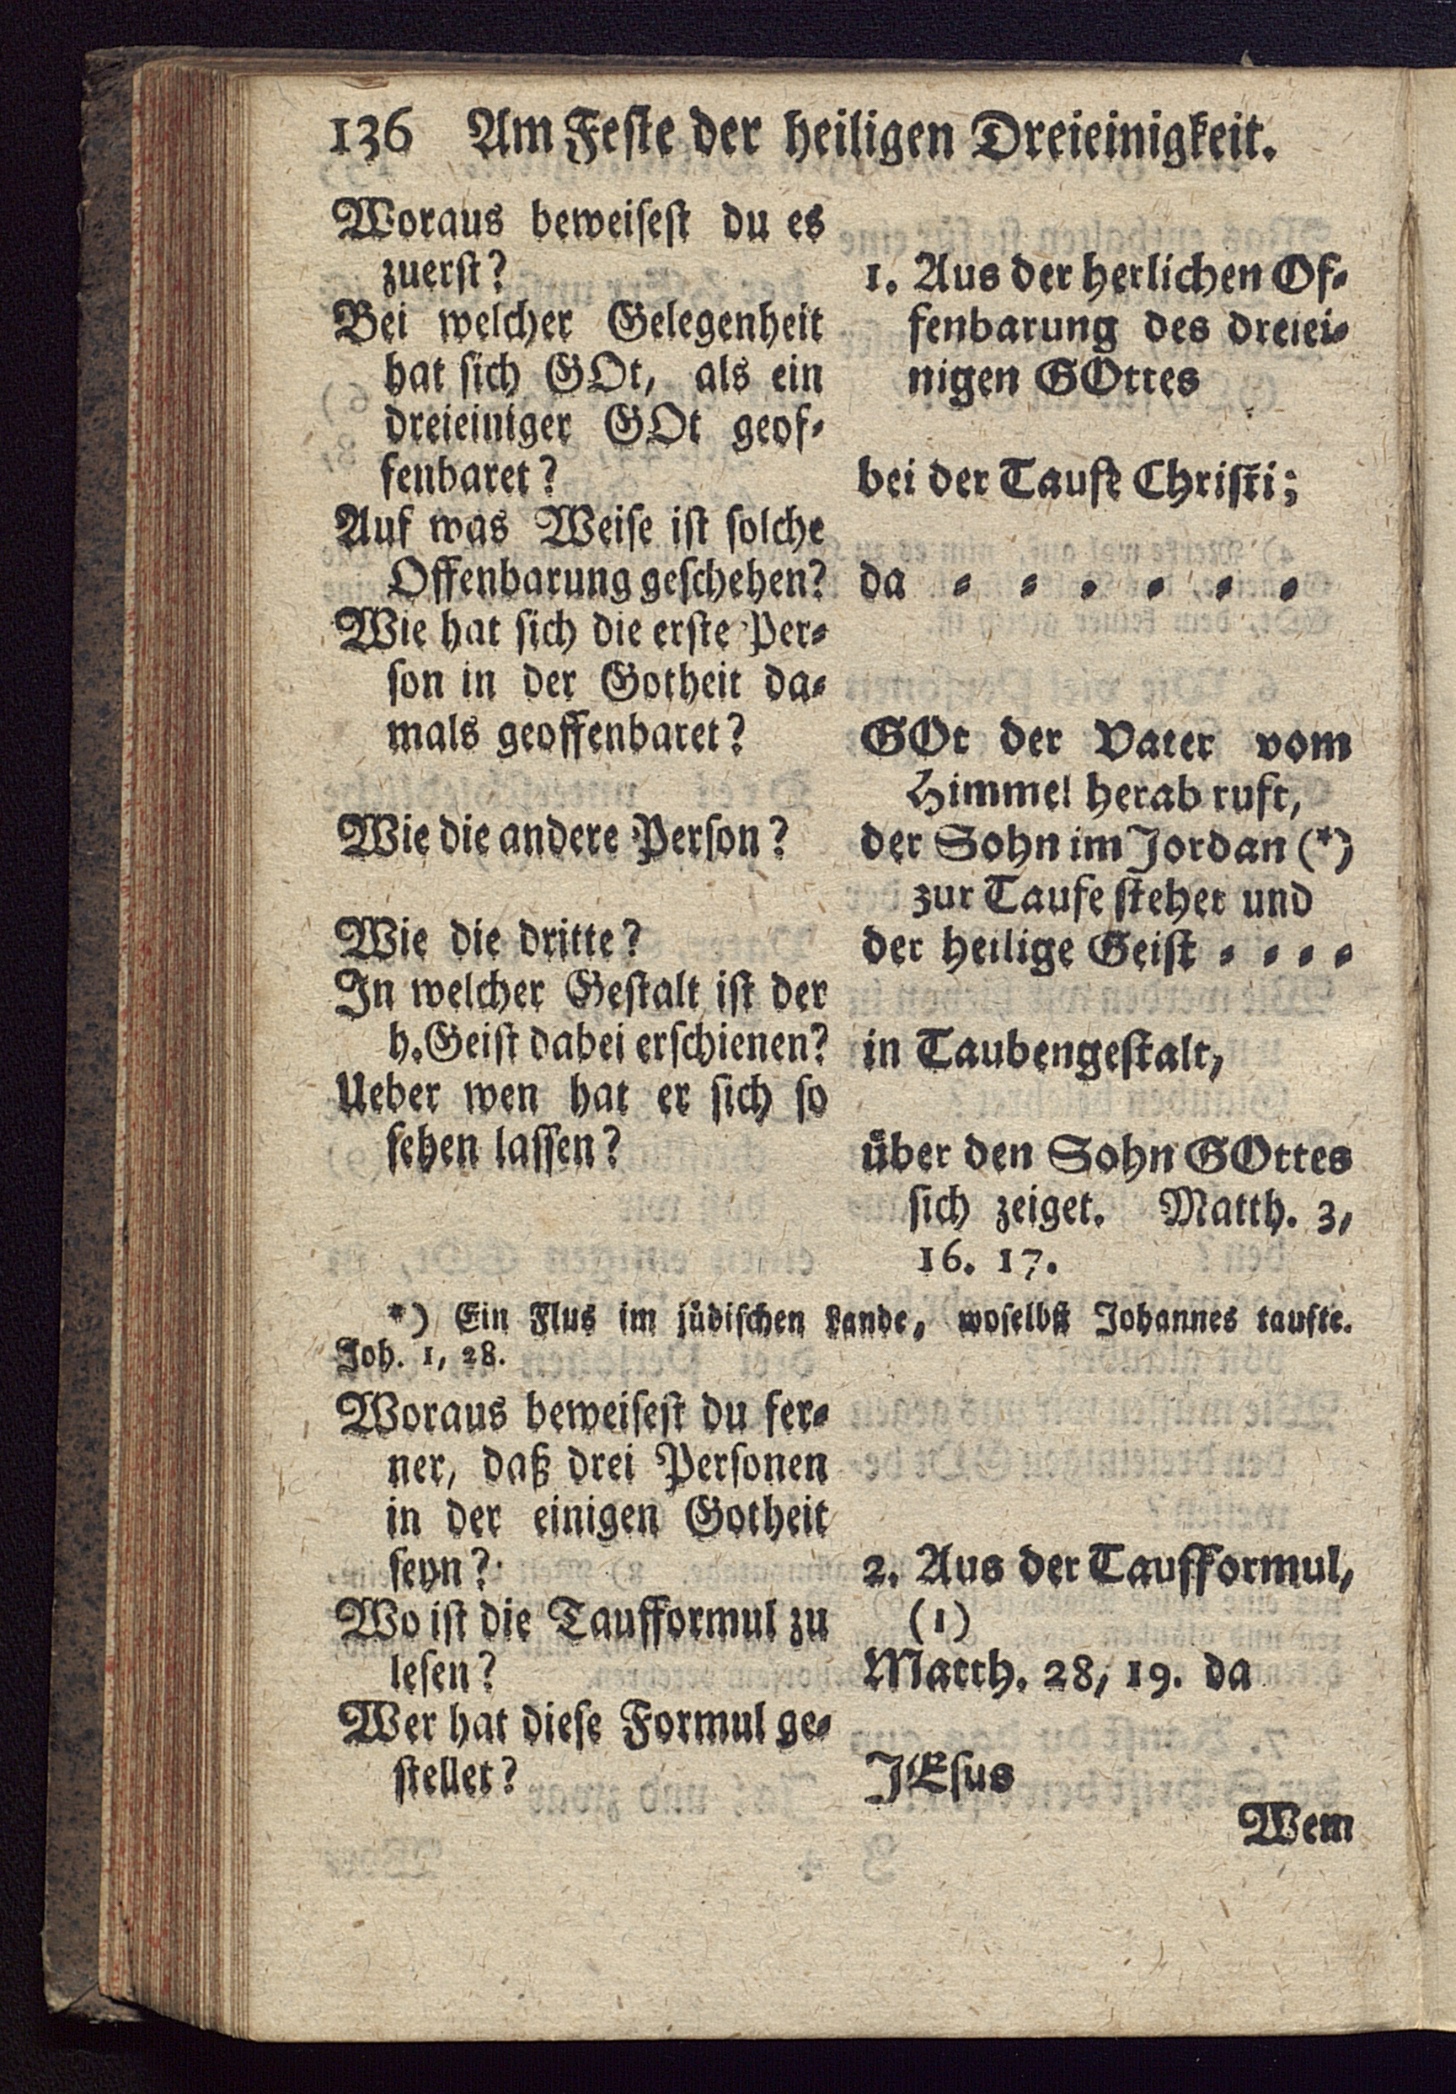 136 Am Feste der heiligen Dreieinigkeit.
Woraus beweisest du es
zuerst?
1. Aus der herlichen Of-
fenbarung des dreiei-
nigen GOttes
Bei welcher Gelegenheit
hat sich GOt, als ein
dreieiniger GOt geof-
fenbaret?
bei der Taufe Christi;
Auf was Weise ist solche
Offenbarung geschehen?
da - - - - - -
Wie hat sich die erste Per-
son in der Gotheit da-
mals geoffenbaret?
GOt der Vater vom
Himmel herab ruft,
Wie die andere Person?
der Sohn im Jordan (*)
zur Taufe stehet und
Wie die dritte?
der heilige Geist - - - -
In welcher Gestalt ist der
h. Geist dabei erschienen?
in Taubengestalt,
Ueber wen hat er sich so
sehen lassen?
über den Sohn GOttes
sich zeiget. Matth. 3,
16. 17.
*) Ein Flus im jüdischen Lande, woselbst Johannes taufte.
Joh. 1, 28.
Woraus beweisest du fer-
ner, daß drei Personen
in der einigen Gotheit
seyn?
2. Aus der Taufformul,
(1)
Wo ist die Taufformul zu
lesen?
Matth. 28, 19. da
Wer hat diese Formul ge-
stellet?
JEsus
Wem